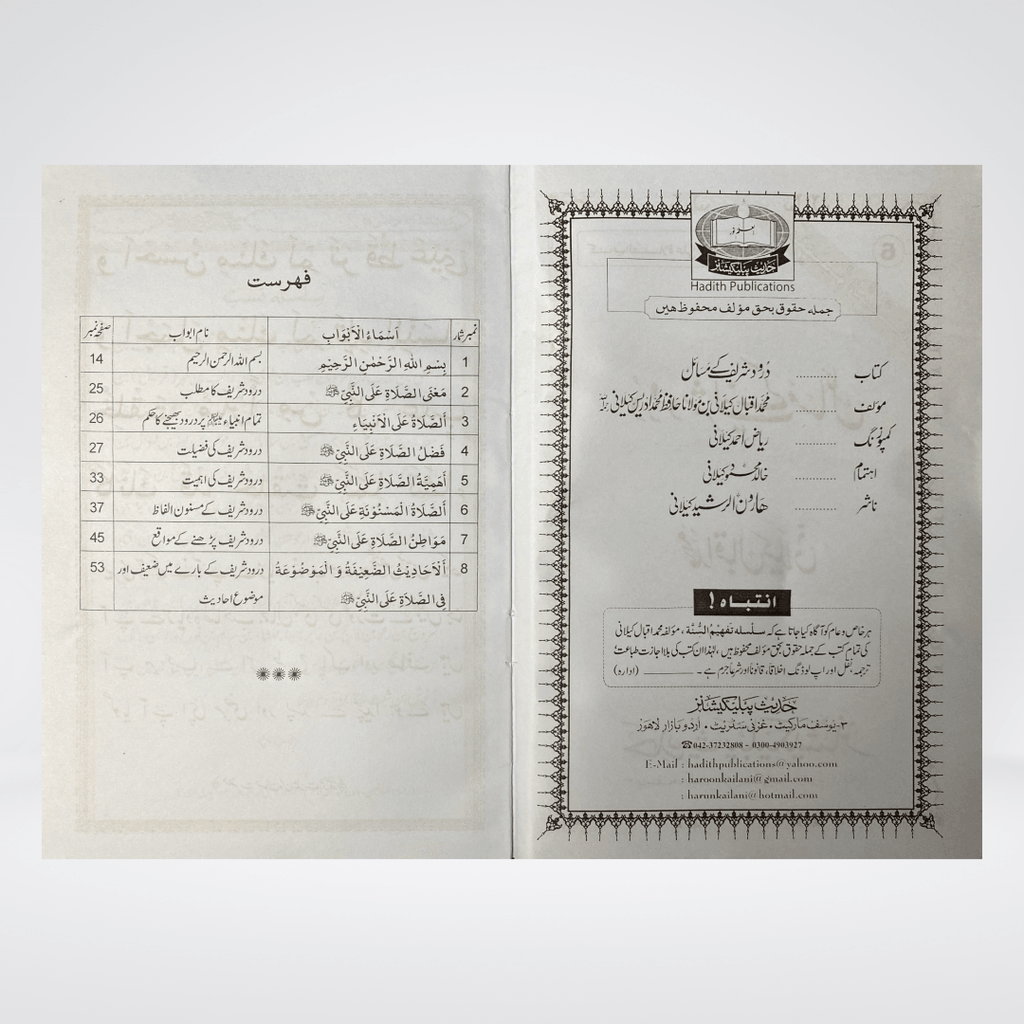 حدیث پبلیکیشنز
Hadith Publications
جملہ حقوق بحق مؤلف محفوظ ھیں
کتاب ............ درُود شریف کے مسائل
مؤلف ............ محمد اقبال کیلانی بن مولانا حافظ محمد ادریس کیلانی رحمہ اللہ
کمپوزنگ ............ ریاض احمد کیلانی
اہتمام ............ خالد محمود کیلانی
ناشر ............ ھارون الرشید کیلانی
انتباہ !
ہر خاص و عام کو آگاہ کیا جاتا ہے کہ سلسلہ تفہیمُ السُّنۃ ، مؤلفہ محمد اقبال کیلانی
کی تمام کتب کے جملہ حقوق بحق مؤلف محفوظ ہیں ، لہٰذا ان کتب کی بلا اجازت طباعت ،
ترجمہ، نقل اور اپ لوڈنگ اخلاقاً، قانوناً اور شرعاً جرم ہے ۔ ــــــــــ (ادارہ)
حدیث پبلیکیشنز
۳-یوسف مارکیٹ ، غزنی سٹریٹ ، اردو بازار لاھور
☎042-37232808 - 0300-4903927
E-Mail : hadithpublications@yahoo.com
: haroonkailani@gmail.com
: harunkailani@hotmail.com
فهرست
نمبر شمار اَسْمَاءُ الْاَبْوَابِ نام ابواب صفحہ نمبر
1 بِسْمِ اللّٰهِ الرَّحْمٰنِ الرَّحِيْمِ بسم اللہ الرحمن الرحیم 14
2 مَعْنَى الصَّلَاةِ عَلَى النَّبِيِّ ﷺ درود شریف کا مطلب 25
3 اَلصَّلَاةُ عَلَى الْاَنْبِيَاءِ تمام انبیاء علیہم السلام پر درود بھیجنے کا حکم 26
4 فَضْلُ الصَّلَاةِ عَلَى النَّبِيِّ ﷺ درود شریف کی فضیلت 27
5 اَهَمِيَّةُ الصَّلَاةِ عَلَى النَّبِيِّ ﷺ درود شریف کی اہمیت 33
6 اَلصَّلَاةُ الْمَسْنُوْنَةِ عَلَى النَّبِيِّ ﷺ درود شریف کے مسنون الفاظ 37
7 مَوَاطِنُ الصَّلَاةِ عَلَى النَّبِيِّ ﷺ درود شریف پڑھنے کے مواقع 45
8 اَلْاَحَادِيْثُ الضَّعِيْفَةُ وَ الْمَوْضُوْعَةُ درود شریف کے بارے میں ضعیف اور 53
فِي الصَّلَاةِ عَلَى النَّبِيِّ ﷺ موضوع احادیث